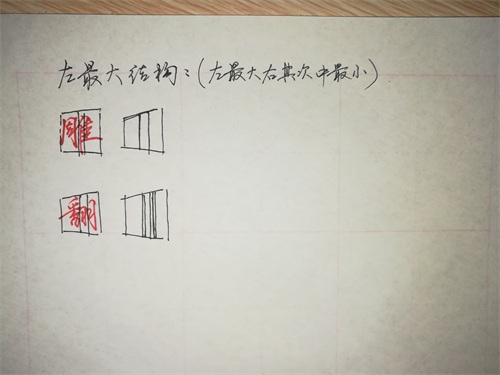 左最大结构:(左最大右其次中最小)
雕
翻